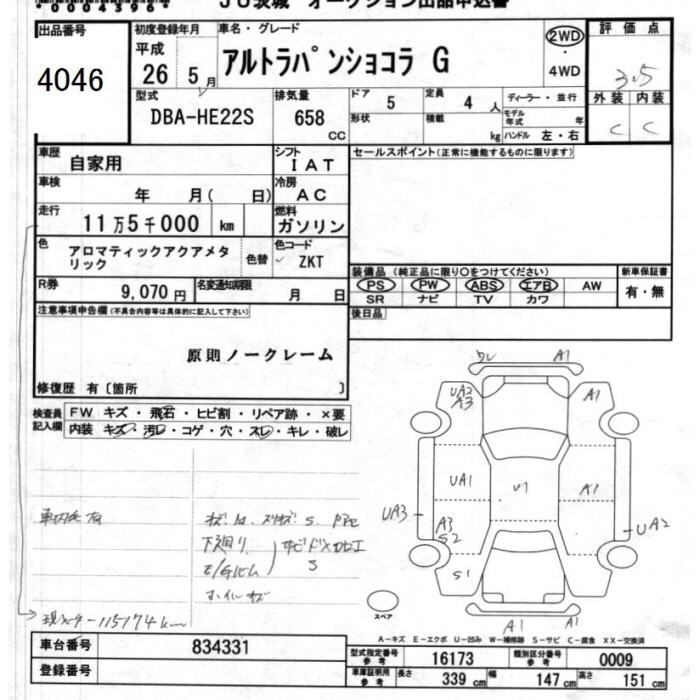 00043960 JU茨城 オークション出品申込書
出品番号
4046
初度登録年月
平成
26 5月
車名・グレード
アルトラパンショコラ G
2WD
・
4WD
評価点
3.5
外装 内装
C C
型式
DBA-HE22S
排気量
658 CC
ドア 5
形状
定員 4 人
積載 kg
ディーラー・並行
モデル年式 年
ハンドル 左・右
車歴 自家用
シフト IAT
セールスポイント(正常に機能するものに限ります)
車検 年 月( 日)
冷房 AC
走行 11万5千000 km
燃料 ガソリン
色 アロマティックアクアメタリック
色替
色コード ZKT
R券 9,070円
名変通知期限 月 日
装備品(純正品に限り○をつけてください)
PS PW ABS エアB AW
SR ナビ TV カワ
新車保証書
有・無
後日品
注意事項申告欄(不具合内容等は具体的に記入して下さい)
原則ノークレーム
修復歴 有〔箇所 〕
検査員記入欄
FW キズ・飛石・ヒビ割・リペア跡・×要
内装 キズ・汚レ・コゲ・穴・スレ・キレ・破レ
ワレ A1
UA2 A3 A1
UA1 U1 A1
UA3 A3 S2 UA2
S1
A1 A1
スペア
下廻り
S
現メーター115174km
A-キズ E-エクボ U-凹み W-補修跡 S-サビ C-腐食 XX-交換済
車台番号 834331
登録番号
型式指定番号参考 16173
類別区分番号参考 0009
車庫証明用参考 長さ 339 cm 幅 147 cm 高さ 151 cm